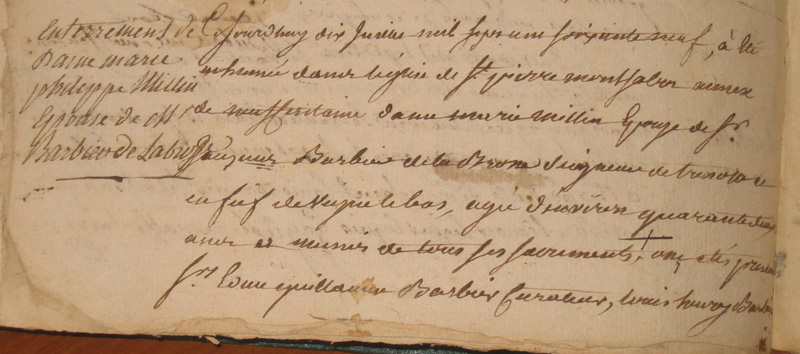 enterrement de
Dame marie
philippe Millin
Epouse de Mr
Barbier de Labrosse
Cejourdhuy dix Juillet mil sept cent soixante neuf, à été
inhumée dans léglise de St pierre montsabot annex
de neuffontaine dame marie millin Epouse de Sr
jacques Barbier de la Brosse Seigneur de
en fief de le bas, agée d'environ quarante deux
ans et munie de tous ses sacrements, ont étés presens
Srs Edme guillaume Barbier Curateur, louis henry Barbier